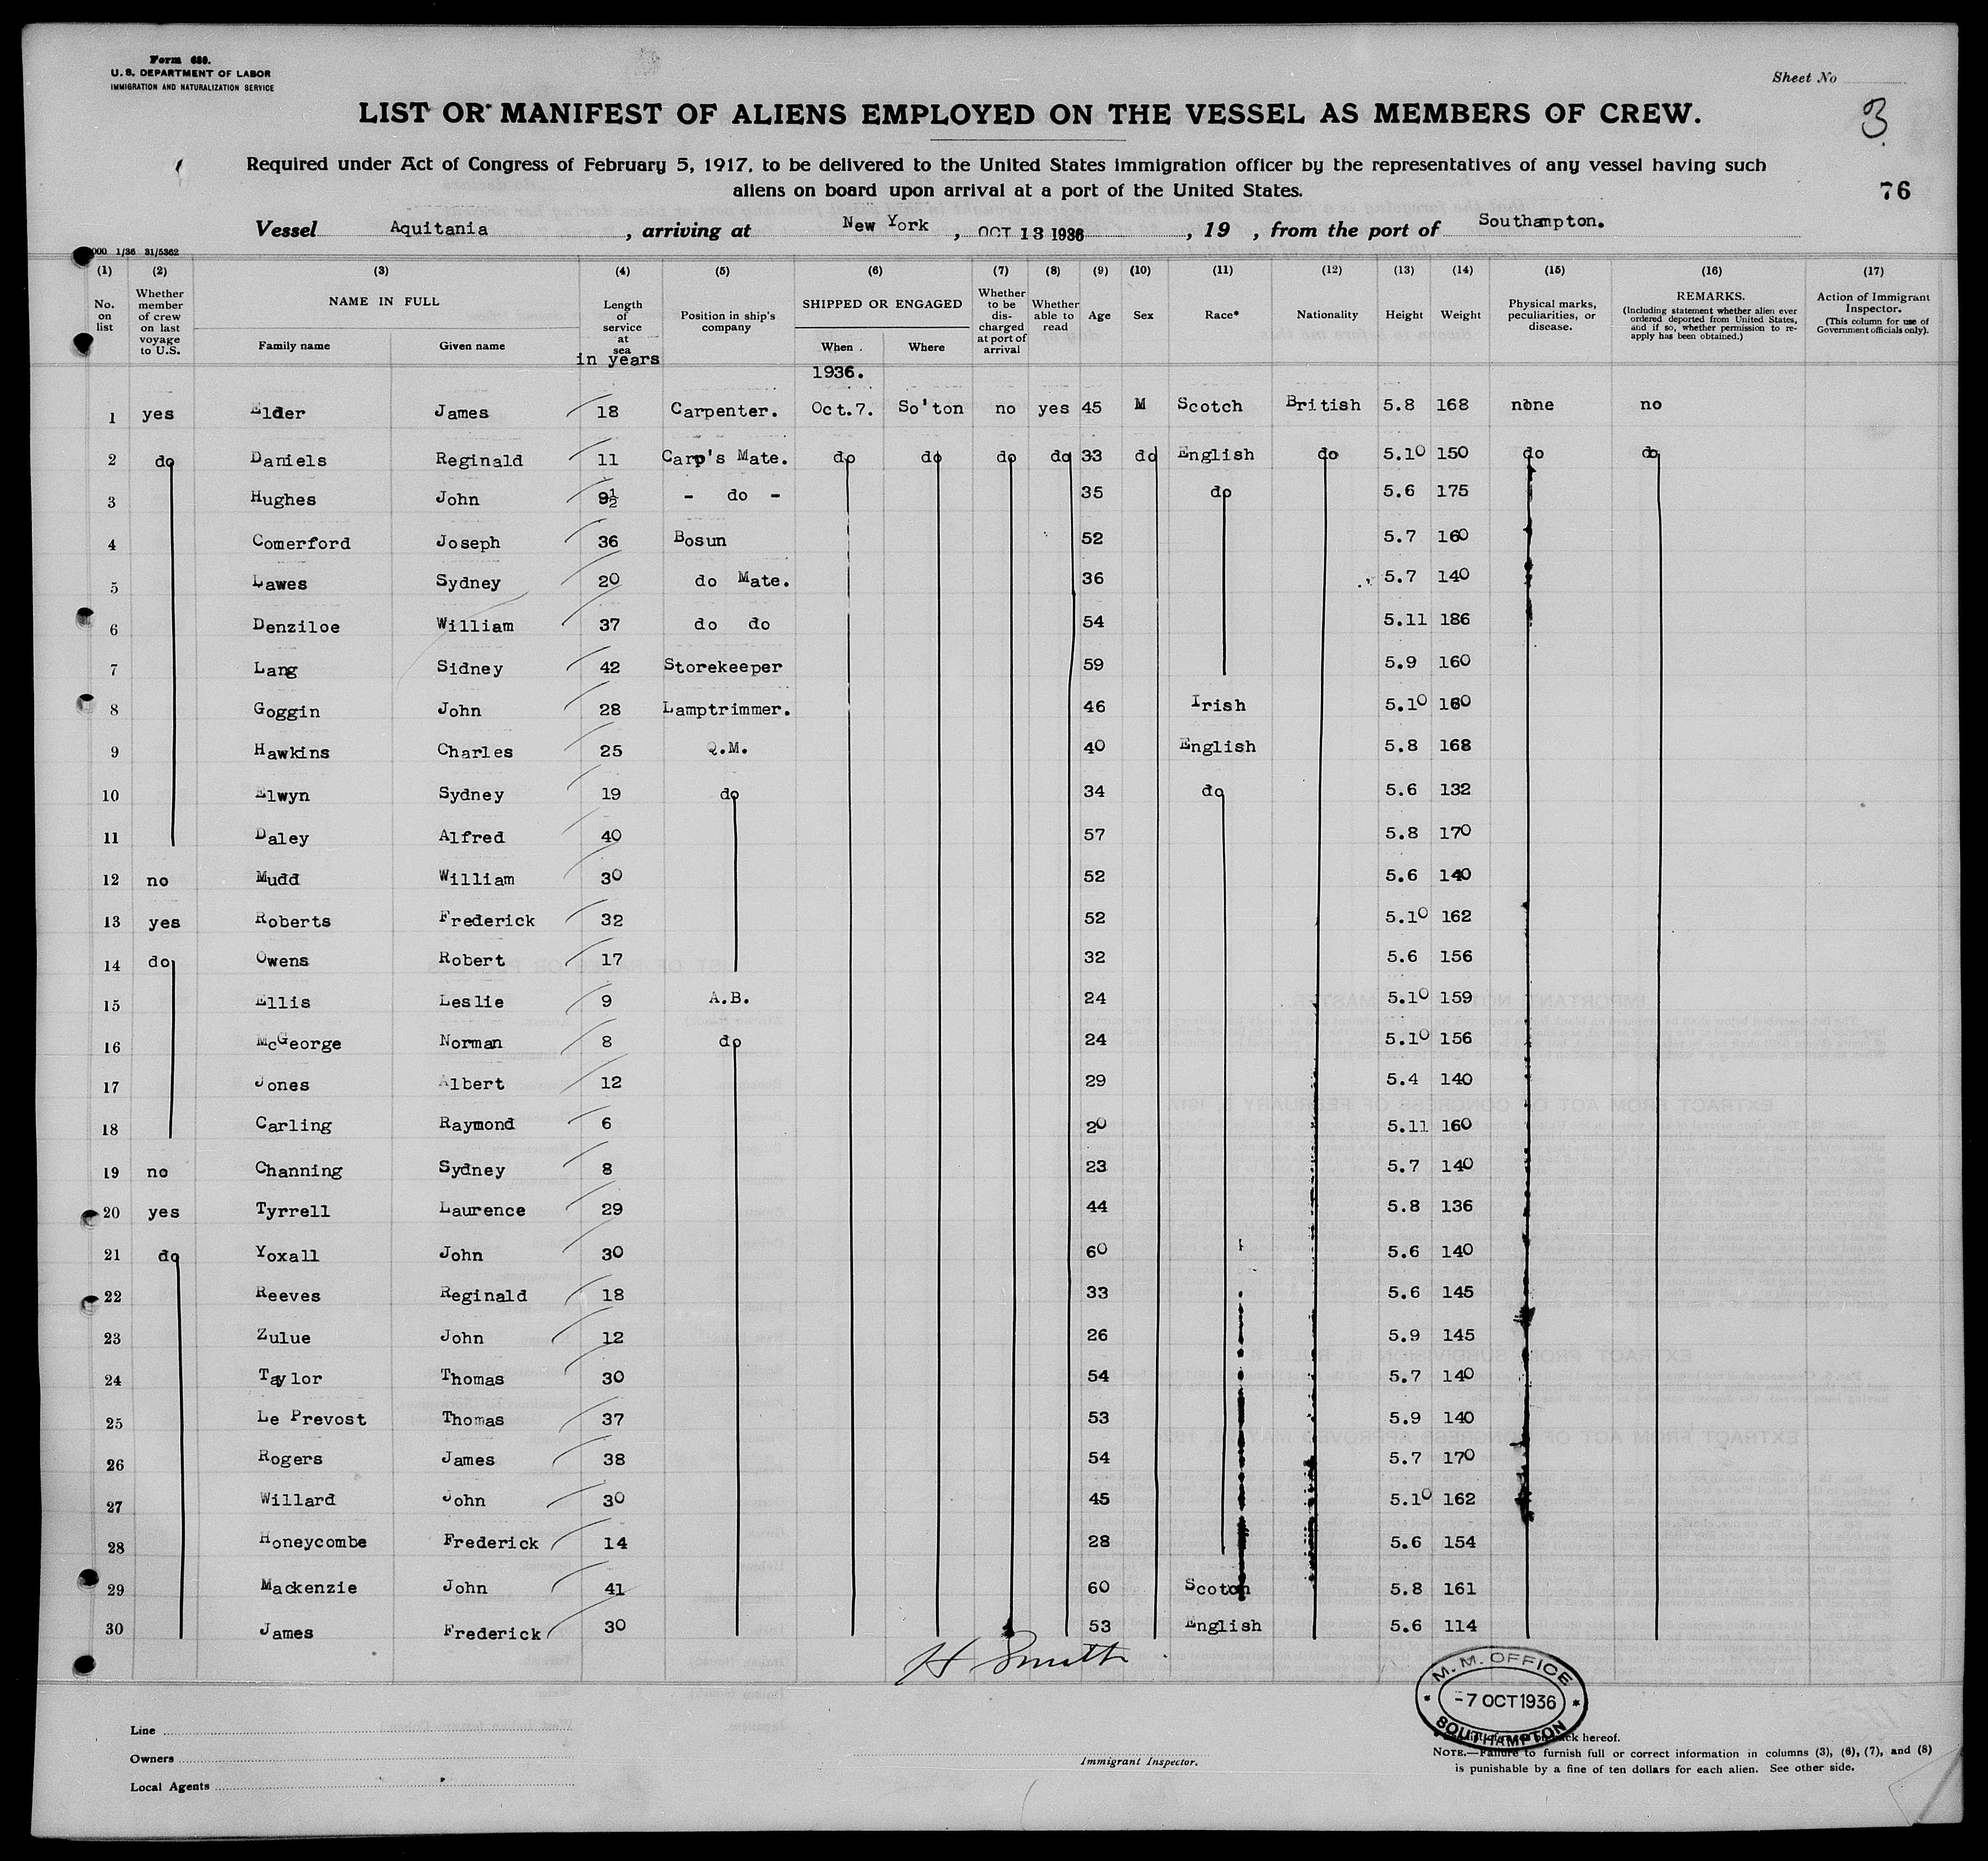 Form 680.
U. S. DEPARTMENT OF LABOR
IMMIGRATION AND NATURALIZATION SERVICE
Sheet No
LIST OR MANIFEST OF ALIENS EMPLOYED ON THE VESSEL AS MEMBERS OF CREW.
3
Required under Act of Congress of February 5, 1917, to be delivered to the United States immigration officer by the representatives of any vessel having such
aliens on board upon arrival at a port of the United States.
76
Vessel Aquitania, arriving at New York, OCT 13 1936, 19 , from the port of Southampton.
000 1/36 31/5362
(1) (2) (3) (4) (5) (6) (7) (8) (9) (10) (11) (12) (13) (14) (15) (16) (17)
No. on list
Whether member of crew on last voyage to U.S.
NAME IN FULL
Family name
Given name
Length of service at sea
in years
Position in ship's company
SHIPPED OR ENGAGED
When
Where
Whether to be discharged at port of arrival
Whether able to read
Age
Sex
Race*
Nationality
Height
Weight
Physical marks, peculiarities, or disease.
REMARKS.
(Including statement whether alien ever ordered deported from United States, and if so, whether permission to re-apply has been obtained.)
Action of Immigrant Inspector.
(This column for use of Government officials only).
1936.
1 yes Elder James 18 Carpenter. Oct.7. So'ton no yes 45 M Scotch British 5.8 168 none no
2 do Daniels Reginald 11 Carp's Mate. do do do do 33 do English do 5.10 150 do do
3 Hughes John 9½ - do - 35 do 5.6 175
4 Comerford Joseph 36 Bosun 52 5.7 160
5 Lawes Sydney 20 do Mate. 36 5.7 140
6 Denziloe William 37 do do 54 5.11 186
7 Lang Sidney 42 Storekeeper 59 5.9 160
8 Goggin John 28 Lamptrimmer. 46 Irish 5.10 160
9 Hawkins Charles 25 Q.M. 40 English 5.8 168
10 Elwyn Sydney 19 do 34 do 5.6 132
11 Daley Alfred 40 57 5.8 170
12 no Mudd William 30 52 5.6 140
13 yes Roberts Frederick 32 52 5.10 162
14 do Owens Robert 17 32 5.6 156
15 Ellis Leslie 9 A.B. 24 5.10 159
16 McGeorge Norman 8 do 24 5.10 156
17 Jones Albert 12 29 5.4 140
18 Carling Raymond 6 20 5.11 160
19 no Channing Sydney 8 23 5.7 140
20 yes Tyrrell Laurence 29 44 5.8 136
21 do Yoxall John 30 60 5.6 140
22 Reeves Reginald 18 33 5.6 145
23 Zulue John 12 26 5.9 145
24 Taylor Thomas 30 54 5.7 140
25 Le Prevost Thomas 37 53 5.9 140
26 Rogers James 38 54 5.7 170
27 Willard John 30 45 5.10 162
28 Honeycombe Frederick 14 28 5.6 154
29 Mackenzie John 41 60 Scotch 5.8 161
30 James Frederick 30 53 English 5.6 114
H Smith
M. M. OFFICE
-7 OCT 1936
SOUTHAMPTON
Line
Owners
Local Agents
Immigrant Inspector.
hereof.
NOTE.—Failure to furnish full or correct information in columns (3), (6), (7), and (8)
is punishable by a fine of ten dollars for each alien. See other side.